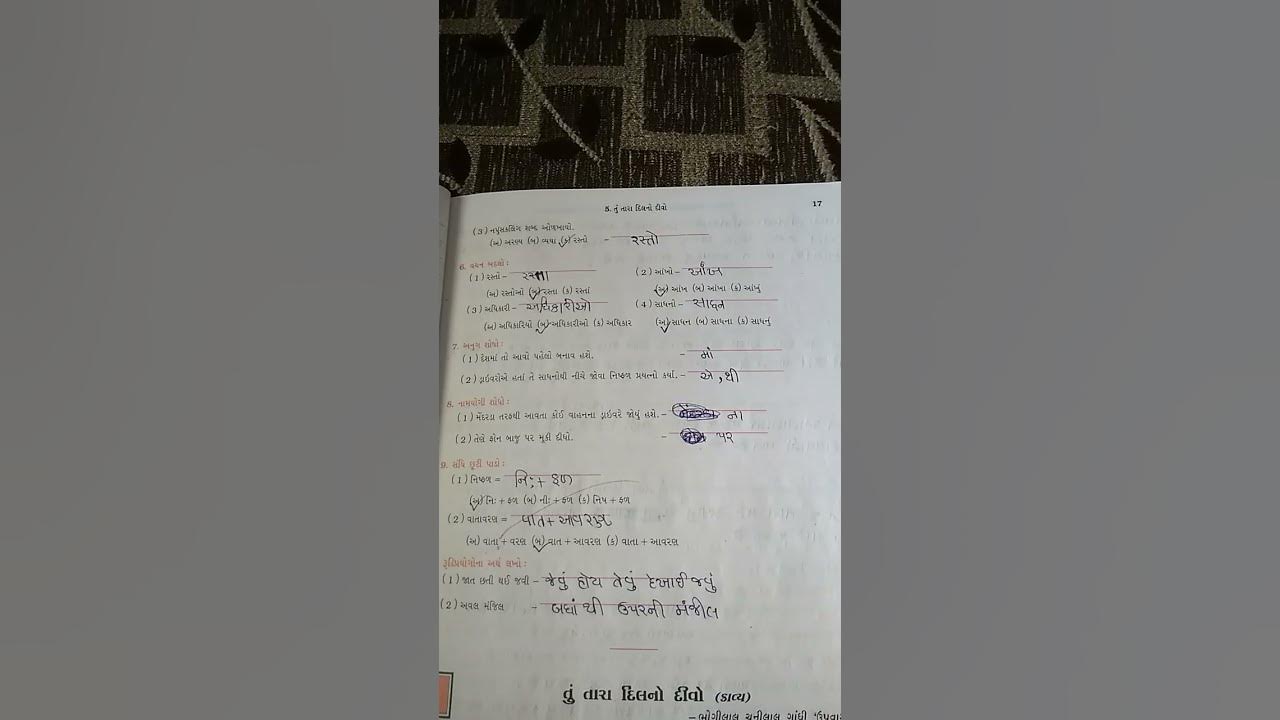 5. તું તારા દિલનો દીવો 17
(3) નપુંસકલિંગ શબ્દ ઓળખાવો.
(અ) અરણ્ય (બ) વ્યથા (ક) રસ્તો - રસ્તો
6. વચન બદલો :
(1) રસ્તો - રસ્તા (2) આંખો - આંખ
(અ) રસ્તોઓ (બ) રસ્તા (ક) રસ્તાં (અ) આંખ (બ) આંખા (ક) આંખું
(3) અધિકારી - અધિકારીઓ (4) સાધનો - સાધન
(અ) અધિકારિયો (બ) અધિકારીઓ (ક) અધિકાર (અ) સાધન (બ) સાધના (ક) સાધનું
7. અનુગ શોધો :
(1) દેશમાં તો આવો પહેલો બનાવ હશે. - માં
(2) ડ્રાઇવરોએ હતાં તે સાધનોથી નીચે જોવા નિષ્ફળ પ્રયત્નો કર્યા. - એ, થી
8. નામયોગી શોધો :
(1) મેંદરડા તરફથી આવતા કોઈ વાહનના ડ્રાઇવરે જોયું હશે. - ના
(2) તેણે ફોન બાજુ પર મૂકી દીધો. - પર
9. સંધિ છૂટી પાડો :
(1) નિષ્ફળ = નિઃ + ફળ
(અ) નિઃ + ફળ (બ) નીઃ + ફળ (ક) નિષ + ફળ
(2) વાતાવરણ = વાત + આવરણ
(અ) વાતા + વરણ (બ) વાત + આવરણ (ક) વાતા + આવરણ
રૂઢિપ્રયોગોના અર્થ લખો :
(1) જાત છતી થઈ જવી - જેવું હોય તેવું દેખાઈ જવું
(2) અવલ મંજિલ - બધાં થી ઉપરની મંજીલ
તું તારા દિલનો દીવો (કાવ્ય)
- ભોગીલાલ ચુનીલાલ ગાંધી